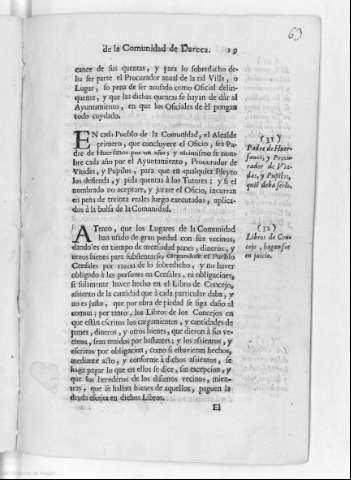 63
de la Comunidad de Daroca. 29
cance de sus quentas, y para lo sobredicho de-
ba ser parte el Procurador atual de la tal Villa, o
Lugar, so pena de ser acusado como Oficial delin-
quente, y que las dichas quentas se hayan de dàr al
Ayuntamiento, en que los Oficiales de èl pongan
todo cuydado.
EN cada Pueblo de la Comunidad, el Alcalde
primero, que concluyere el Oficio, sea Pa-
dre de Huerfanos por un año; y assimismo se nom-
bre cada año por el Ayuntamiento, Procurador de
Viudas, y Pupilos, para que en qualquier Pleyto
los defienda, y pida quentas à los Tutores; y si el
nombrado no aceptare, y jurare el Oficio, incurran
en pena de treinta reales luego executados, aplica-
dos à la bolsa de la Comunidad.
(31)
Padre de Huer-
fanos, y Procu-
rador de Viu-
das, y Pupilos,
quièn deba serlo.
ATento, que los Lugares de la Comunidad
han usado de gran piedad con sus vecinos,
dandoles en tiempo de necessidad panes, dineros, y
otros bienes para sustentarse, cargandose el Pueblo
Censales por razon de lo sobredicho, y no haver
obligado à las personas en Censales, ni obligaciones,
si solamente haver hecho en el Libro de Concejo,
assiento de la cantidad que à cada particular daba, y
no es justo, que por obra de piedad se siga daño al
comun; por tanto, los Libros de los Concejos en
que estàn escritos los cargamientos, y cantidades de
panes, dineros, y otros bienes, que dieron à sus ve-
cinos, sean tenidos por bastantes; y los assientos, y
escritos por obligacion, como si estuvieran hechos,
mediante acto, y conforme à dichos assientos, se
haga pagar lo que en ellos se dice, sin excepcion, y
que sus herederos de los difuntos vecinos, mien-
tras, que se hallen bienes de aquellos, paguen la
deuda escrita en dichos Libros.
(32)
Libros de Con-
cejo, hagan fee
en juicio.
El